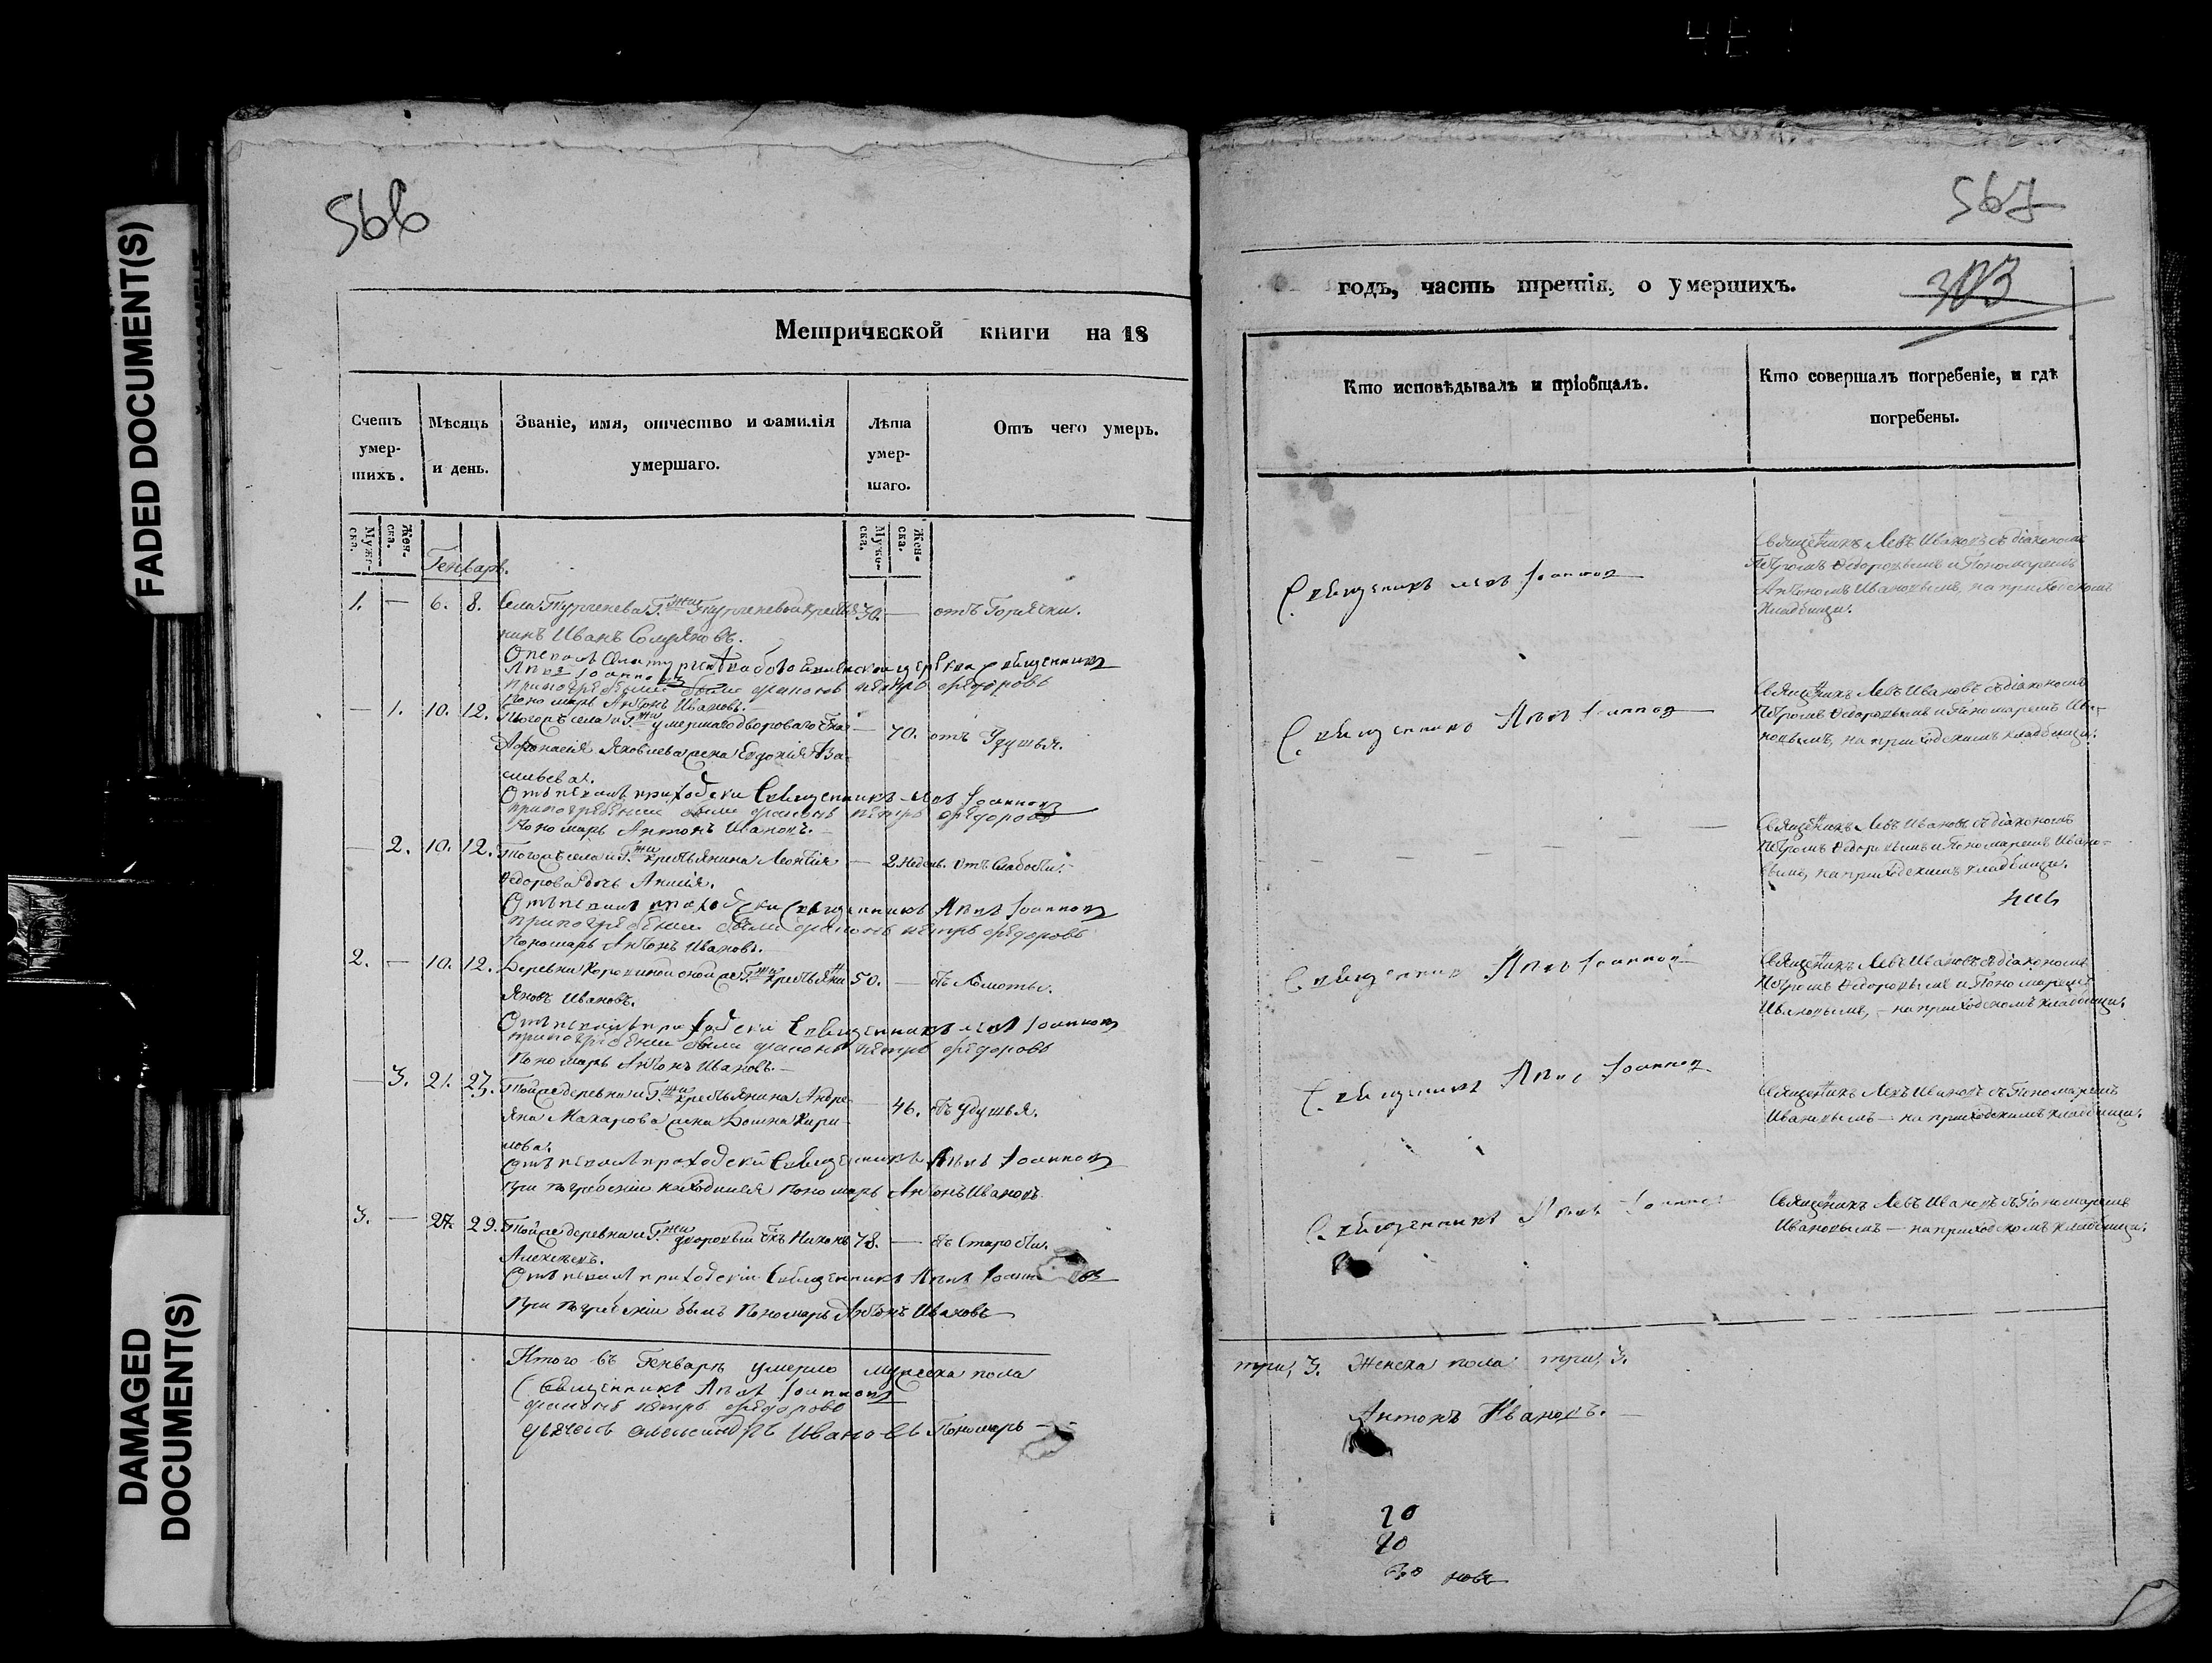 FADED DOCUMENT(S)
DAMAGED
DOCUMENT(S)
566
Метрической книги на 18
Счетъ умершихъ.
Мѣсяцъ и день.
Званіе, имя, отчество и фамилія умершаго.
Лѣта умершаго.
Отъ чего умеръ.
Мужеска.
Женска.
Мужеска.
Женска.
Генварь.
1. — 6. 8. Села Тургенева Г.жи Тургеневой крестья 30. — отъ Горячки.
нинъ Иванъ
священникъ
при погребеніи были діаконъ Петръ Федоровъ
Пономарь Антонъ Ивановъ.
— 1. 10. 12. Тогожъ села и Г.жи умершаго двороваго — 70. отъ Удушья.
Афонасія Яковлева жена Евдокія Ва-
сильева.
Отпевалъ приходский Священникъ Левъ Іоанновъ
при погребении были диаконъ петръ федоровъ
Пономарь Антонъ Ивановъ.
— 2. 10. 12. Тогожъ села и Г.жи крестьянина Леонтія — 2 недель. отъ Слабости.
Федорова дочь
Отпевалъ приходски Священникъ Левъ Іоанновъ
при погребении были диаконъ петръ федоровъ
Пономарь Антонъ Ивановъ.
2. — 10. 12. Деревни тойже Г.жи крестьянин 50. — отъ Ломоты.
Яковъ Ивановъ.
Отпевалъ приходски Священникъ Левъ Іоанновъ
при погребении были диаконъ петръ федоровъ
Пономарь Антонъ Ивановъ.
— 3. 21. 23. Тойже деревни и Г.жи крестьянина Андре- — 46. отъ Удушья.
яна Макарова жена Домна Кири-
лова.
Отпевалъ приходский Священникъ Левъ Іоанновъ
При погребеніи находился Пономарь Антонъ Ивановъ
3. — 27. 29. Тойже деревни и Г.жи дворовый 78. — отъ Старости.
Алексеевъ.
Отпевалъ приходский Священникъ Левъ
При погребеніи былъ Пономарь Антонъ Ивановъ
Итого въ Генваре умерло мужеска пола
Священникъ Левъ Іоанновъ
диаконъ петръ федоровъ
дьячекъ александръ Ивановъ Пономарь
567
303
годъ, часть третія, о умершихъ.
Кто исповѣдывалъ и пріобщалъ.
Кто совершалъ погребеніе, и гдѣ погребены.
Священникъ левъ Іоанновъ
Священникъ Левъ Ивановъ съ діакономъ
Петромъ Федоровымъ и Пономаремъ
Антономъ Ивановымъ, на приходскомъ
кладбищи.
Священникъ Левъ Іоанновъ
Священникъ Левъ Ивановъ съ діакономъ
Петромъ Федоровымъ и Пономаремъ Ива-
новымъ, на приходскимъ кладбищи.
— — — — —
Священникъ Левъ Ивановъ съ діакономъ
Петромъ Федоровымъ и Пономаремъ Ивано-
вымъ, на приходскимъ кладбищи.
Священникъ Левъ Іоанновъ
Священникъ Левъ Ивановъ съ діакономъ
Петромъ Федоровымъ и Пономаремъ
Ивановымъ, — на приходскомъ кладбищи.
Священникъ Левъ Іоанновъ
Священникъ Левъ Ивановъ съ Пономаремъ
Ивановымъ — на приходскимъ кладбищи.
Священникъ Левъ Іоанновъ
Священникъ Левъ Ивановъ съ Пономаремъ
Ивановымъ — на приходскомъ кладбищи.
три, 3. Женска пола три, 3.
Антонъ Ивановъ.